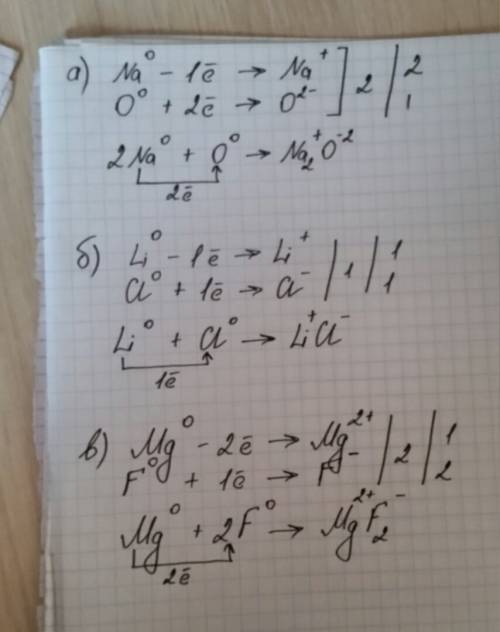 а) Na⁰ - 1ē → Na⁺ ] 2 | 2
O⁰ + 2ē → O²⁻ 1
2Na⁰ + O⁰ → Na₂⁺O⁻²
2ē
б) Li⁰ - 1ē → Li⁺ | 1 | 1
Cl⁰ + 1ē → Cl⁻ 1
Li⁰ + Cl⁰ → Li⁺Cl⁻
1ē
в) Mg⁰ - 2ē → Mg²⁺ | 2 | 1
F⁰ + 1ē → F⁻ 2
Mg⁰ + 2F⁰ → Mg²⁺F₂⁻
2ē